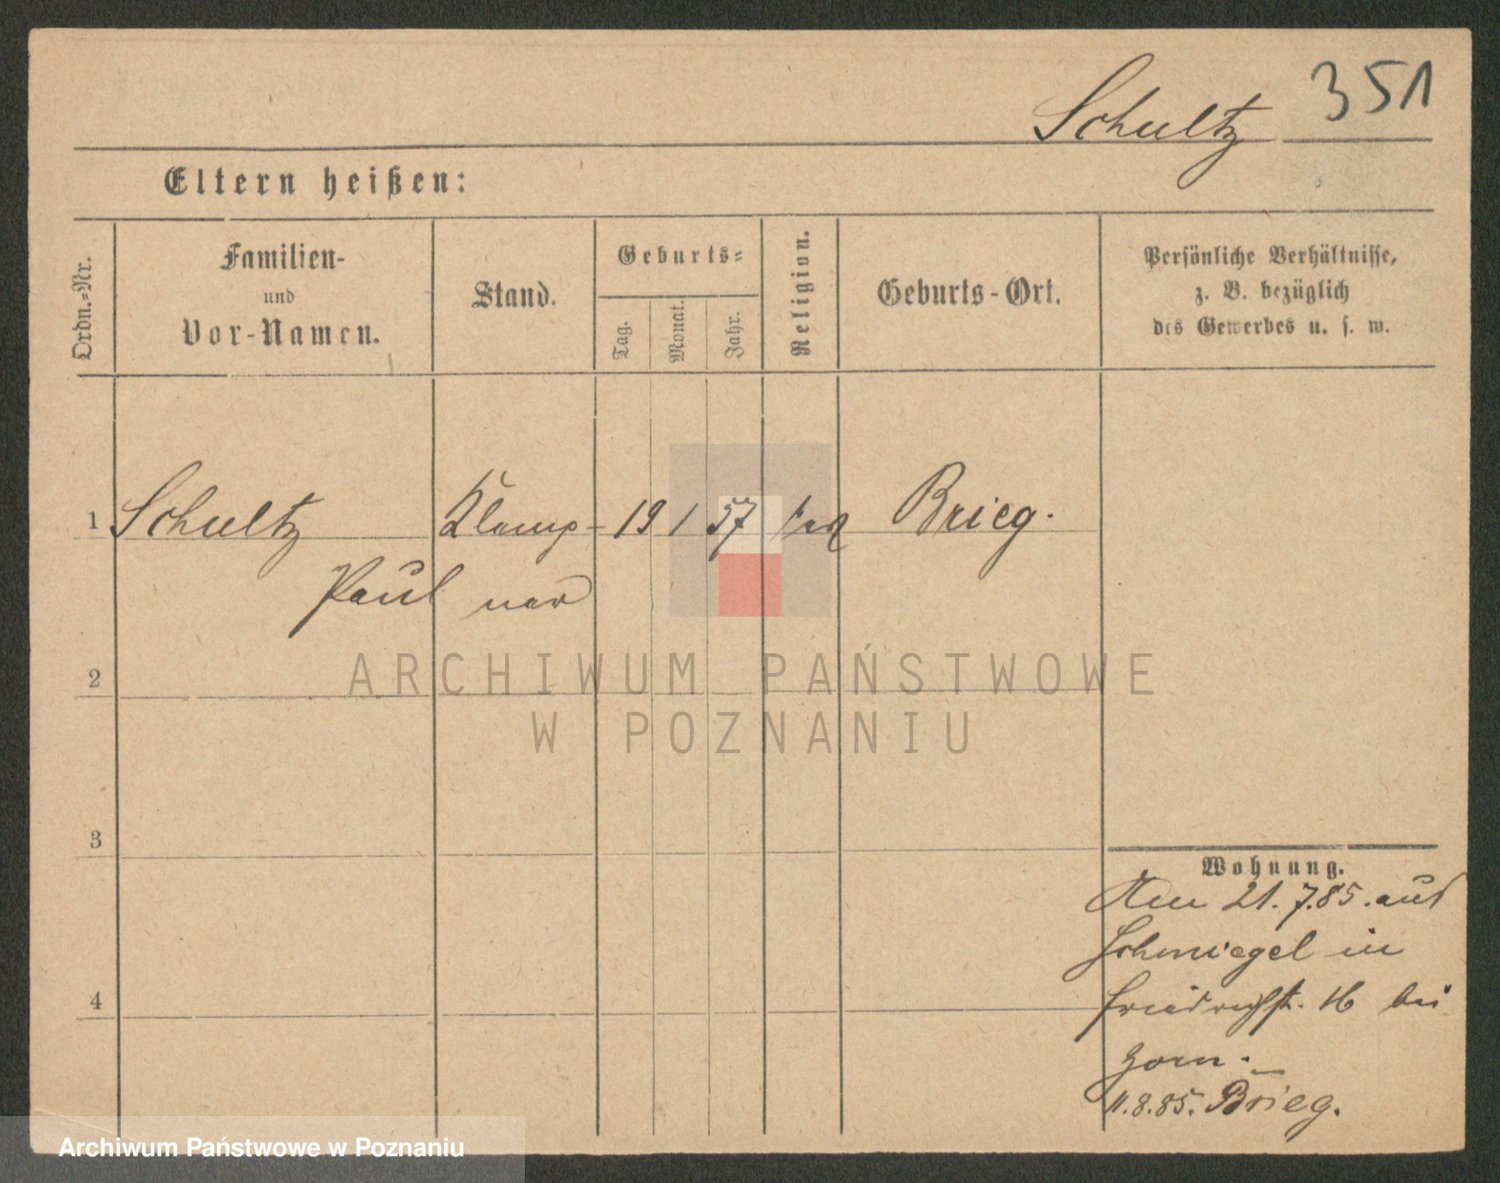 351
Schultz
Eltern heißen:
Ordn.-Nr.
Familien-
und
Vor-Namen.
Stand.
Geburts-
Tag.
Monat.
Jahr.
Religion.
Geburts-Ort.
Persönliche Verhältnisse,
z. B. bezüglich
des Gewerbes u. s. w.
1 Schultz Klemp- 19 1 57 Brieg.
Paul ner
2
3
4
Wohnung.
Am 21.7.85. aus
Schmiegel in
Friedrichst. 16 bei
Zorn.
11.8.85. Brieg.
ARCHIWUM PAŃSTWOWE
W POZNANIU
Archiwum Państwowe w Poznaniu